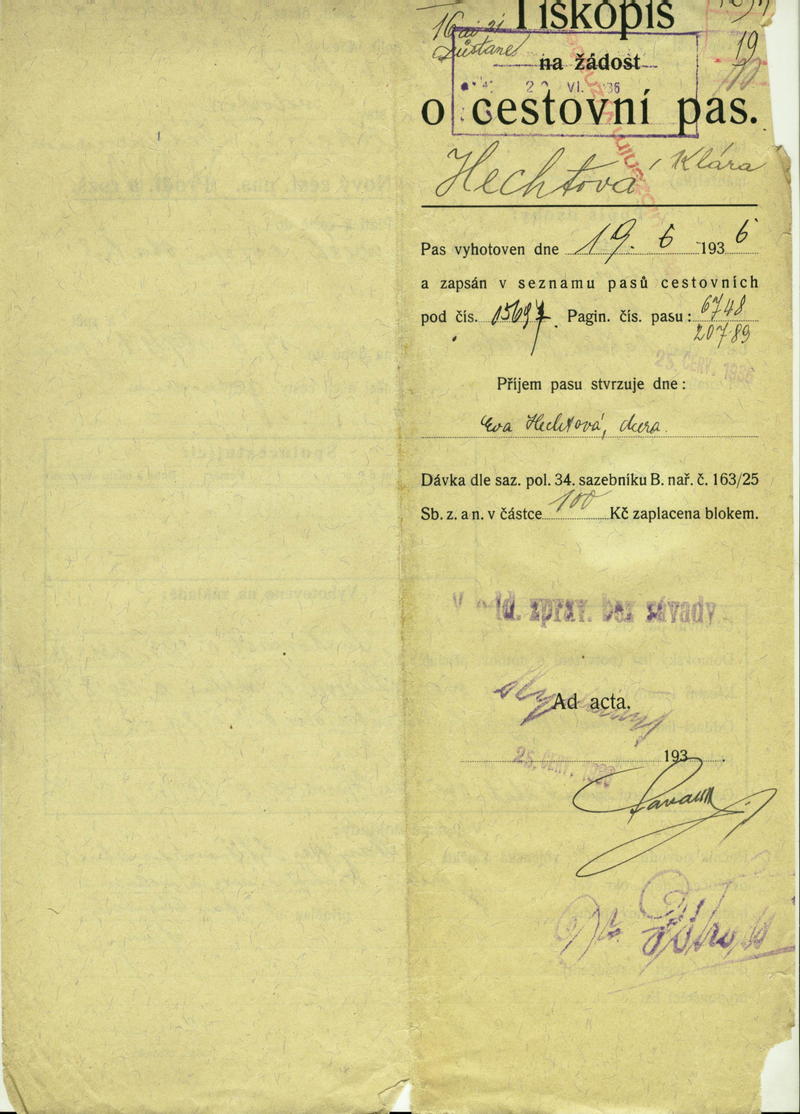 Tiskopis
na žádost
19
o cestovní pas.
Hechtová Klára
Pas vyhotoven dne 19. 6 1936
a zapsán v seznamu pasů cestovních
pod čís. 15697. Pagin. čís. pasu: 6748
20789
25. ČERV. 1936
Příjem pasu stvrzuje dne:
Eva Hechtová, dcera.
Dávka dle saz. pol. 34. sazebníku B. nař. č. 163/25
Sb. z. a n. v částce 100 Kč zaplacena blokem.
zprav. bez závady
Ad acta.
25. ČERV. 1936
193
Dr.